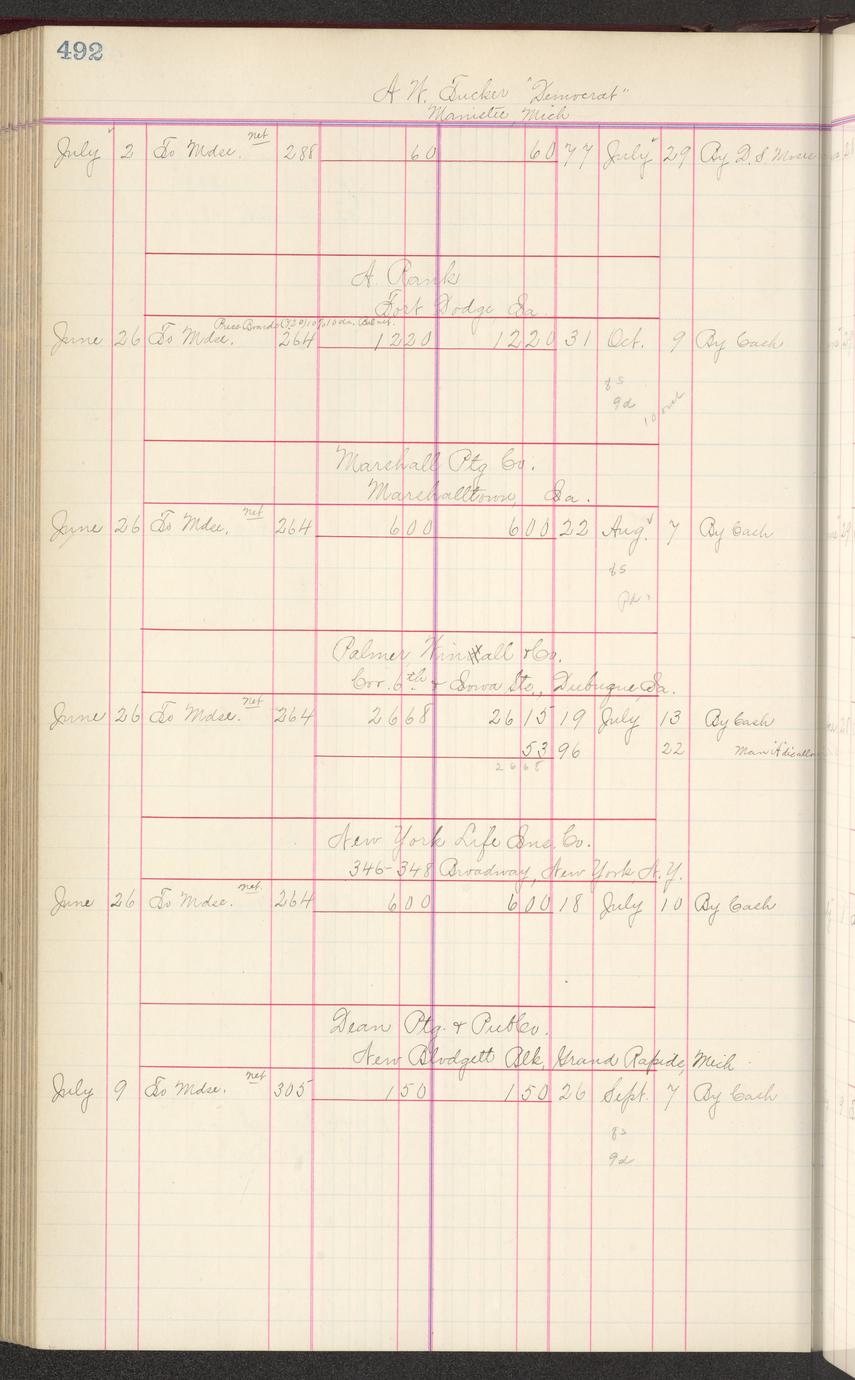 492
A. W. Tucker "Democrat"
Manistee, Mich
July 2 To Mdse. net 288 60 60 77 July 29 By D. S.
A. Rank
Fort Dodge Ia.
Press Boards
June 26 To Mdse. 264 1220 1220 31 Oct. 9 By Cash
9d 10 over
Marshall Ptg Co.
Marshalltown, Ia.
June 26 To Mdse. net 264 600 600 22 Aug. 7 By Cash
Palmer, Winall & Co.
Cor. 6th & Iowa Sts., Dubuque, Ia.
June 26 To Mdse. net 264 2668 2615 19 July 13 By Cash
53 96 22
2668
New York Life Ins. Co.
346-348 Broadway, New York N.Y.
June 26 To Mdse. net. 264 600 600 18 July 10 By Cash
Dean Ptg. & Pub Co.
New Blodgett Blk, Grand Rapids, Mich
July 9 To Mdse. net 305 150 150 26 Sept. 7 By Cash
9d